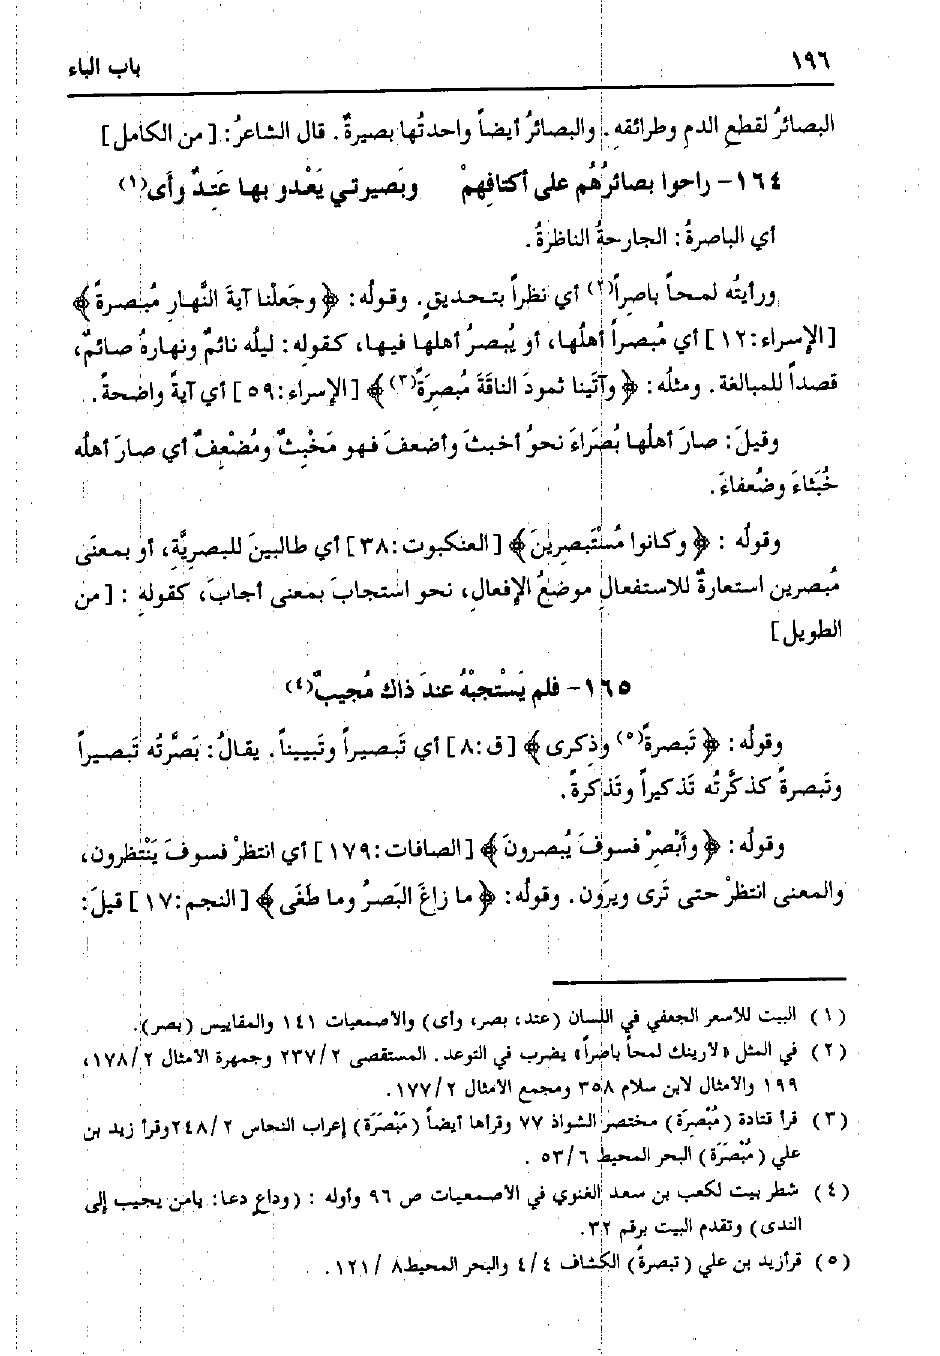 ١٩٦ باب الباء
البصائرُ لقطع الدم وطرائقه. والبصائرُ أيضاً واحدتُها بصيرةٌ. قال الشاعرُ: [من الكامل]
١٦٤- راحوا بصائرُهُم على أكتافِهمْ وبَصيرتي يَعْدو بها عَتِدٌ وأَى(١)
أي الباصرةُ: الجارحةُ الناظرةُ.
ورأيتُه لمحاً باصِراً(٢) أي نظراً بتحديقٍ. وقولُه: ﴿وجَعلْنا آيةَ النَّهارِ مُبصرةً﴾
[الإسراء: ١٢] أي مُبصراً أهلُها، أو يُبصرُ أهلها فيها، كقوله: ليلُه نائمٌ ونهارهُ صائمٌ،
قصداً للمبالغة. ومثلُه: ﴿وآتَينا ثمودَ الناقَةَ مُبصرَةً(٣)﴾ [الإسراء: ٥٩] أي آيةً واضحةً.
وقيلَ: صارَ أهلُها بُصَراءَ نحوُ أخبثَ وأضعفَ فهو مَخْبِثٌ ومُضْعِفٌ أي صارَ أهله
خُبَثاءَ وضُعفاءَ.
وقولُه : ﴿وكانوا مُسْتَبصِرِينَ﴾ [العنكبوت: ٣٨] أي طالبينَ للبصريَّةِ، أو بمعنَى
مُبصرين استعارةً للاستفعالِ موضعُ الإفعالِ، نحو استجابَ بمعنى أجابَ، كقولهِ : [من
الطويل]
١٦٥- فلم يَسْتجبْهُ عندَ ذاك مُجيبٌ(٤)
وقولُه: ﴿تَبصرةً(٥) وذِكرى﴾ [ق: ٨] أي تَبصيراً وتَبييناً. يقالُ: بَصَّرتُه تَبصيراً
وتَبصرةً كذكَّرتُه تَذكيراً وتَذكرةً.
وقولُه: ﴿وأَبْصِرْ فسوفَ يُبصرونَ﴾ [الصافات: ١٧٩] أي انتظرْ فسوفَ يَنْتظرون،
والمعنى انتظرْ حتى تَرى ويرَون. وقولُه: ﴿ما زاغَ البَصرُ وما طَغَى﴾ [النجم: ١٧] قيلَ:
(١) البيت للأسعر الجعفي في اللسان (عتد، بصر، وأى) والاصمعيات ١٤١ والمقاييس (بصر).
(٢) في المثل «لأرينك لمحاً باصراً» يضرب في التوعد. المستقصى ٢٣٧/٢ وجمهرة الامثال ١٧٨/٢،
١٩٩ والامثال لابن سلام ٣٥٨ ومجمع الامثال ١٧٧/٢.
(٣) قرأ قتادة (مُبْصِرَة) مختصر الشواذ ٧٧ وقرأها أيضاً (مَبْصَرَة) إعراب النحاس ٢٤٨/٢ وقرأ زيد بن
علي (مُبْصَرَة) البحر المحيط ٥٣/٦ .
(٤) شطر بيت لكعب بن سعد الغنوي في الاصمعيات ص ٩٦ وأوله : (وداعٍ دعا: يامن يجيب إلى
الندى) وتقدم البيت برقم ٣٢.
(٥) قرأ زيد بن علي (تبصرةٌ) الكشاف ٤/٤ والبحر المحيط ٨ /١٢١.